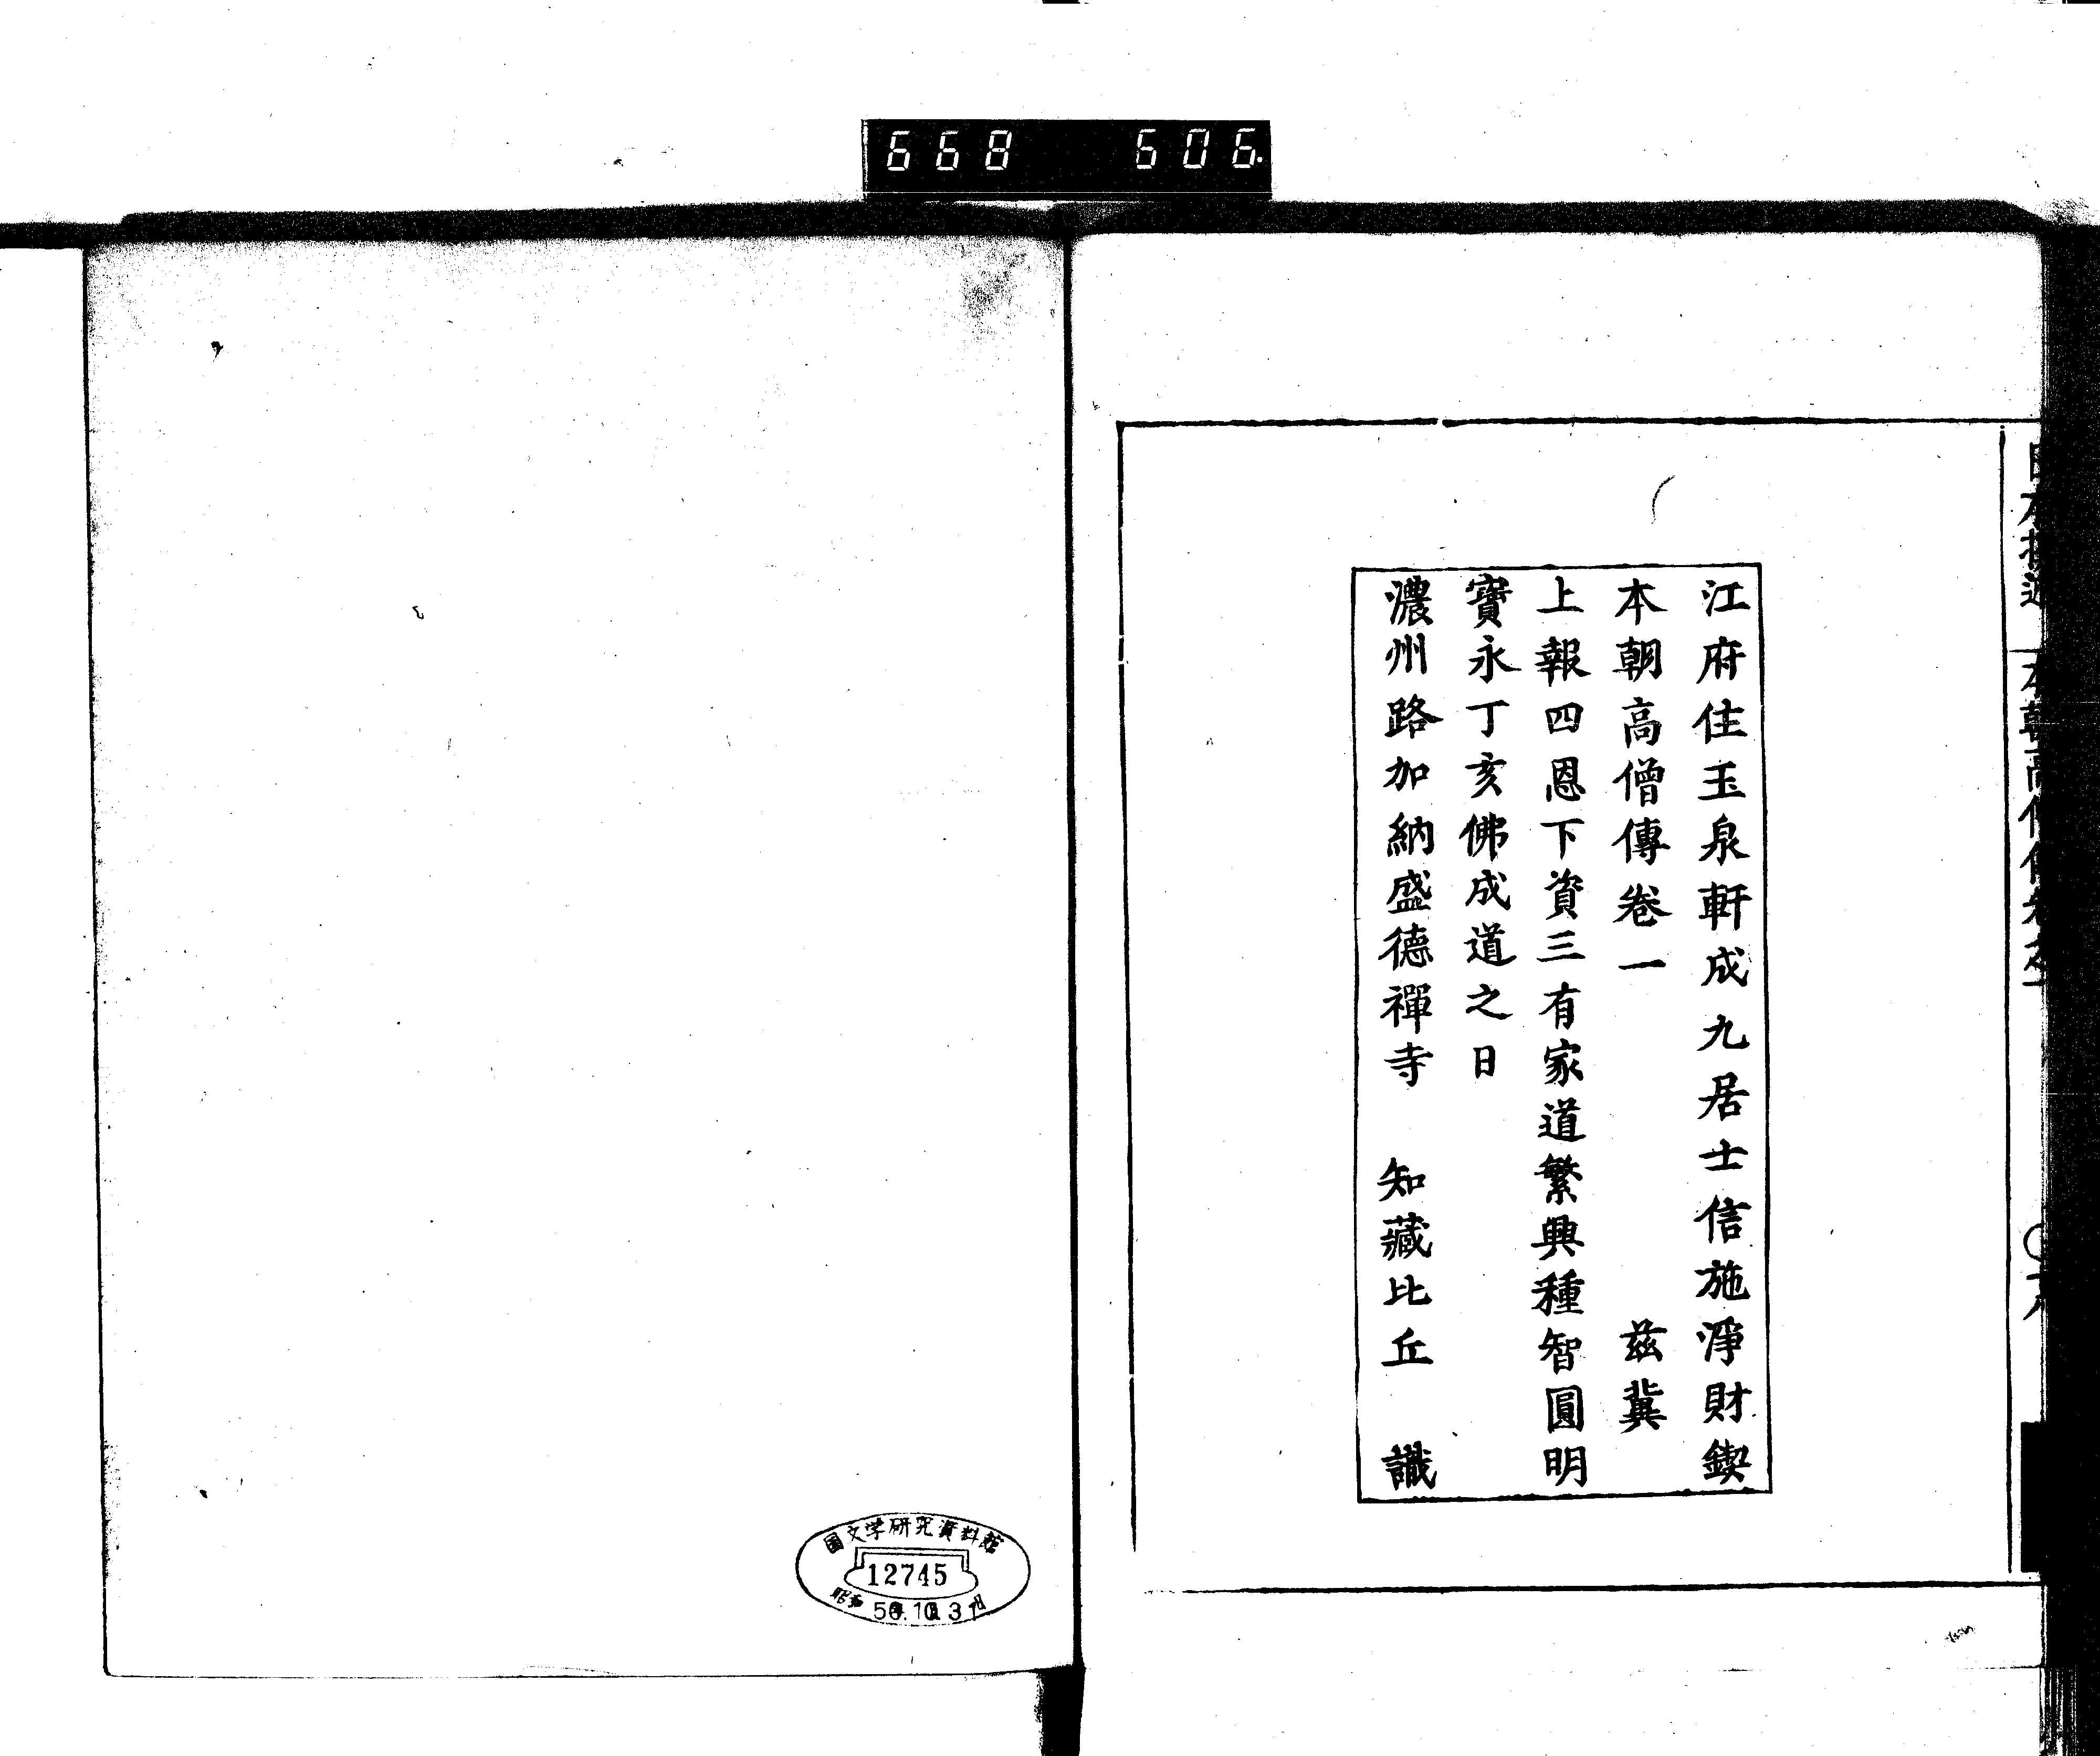 668 606.
江府住玉泉軒成九居士信施淨財鍥
本朝高僧傳卷一 茲冀
上報四恩下資三有家道繁興種智圓明
寶永丁亥佛成道之日
濃州路加納盛德禪寺 知藏比丘 識
国文学研究資料館
12745
昭和